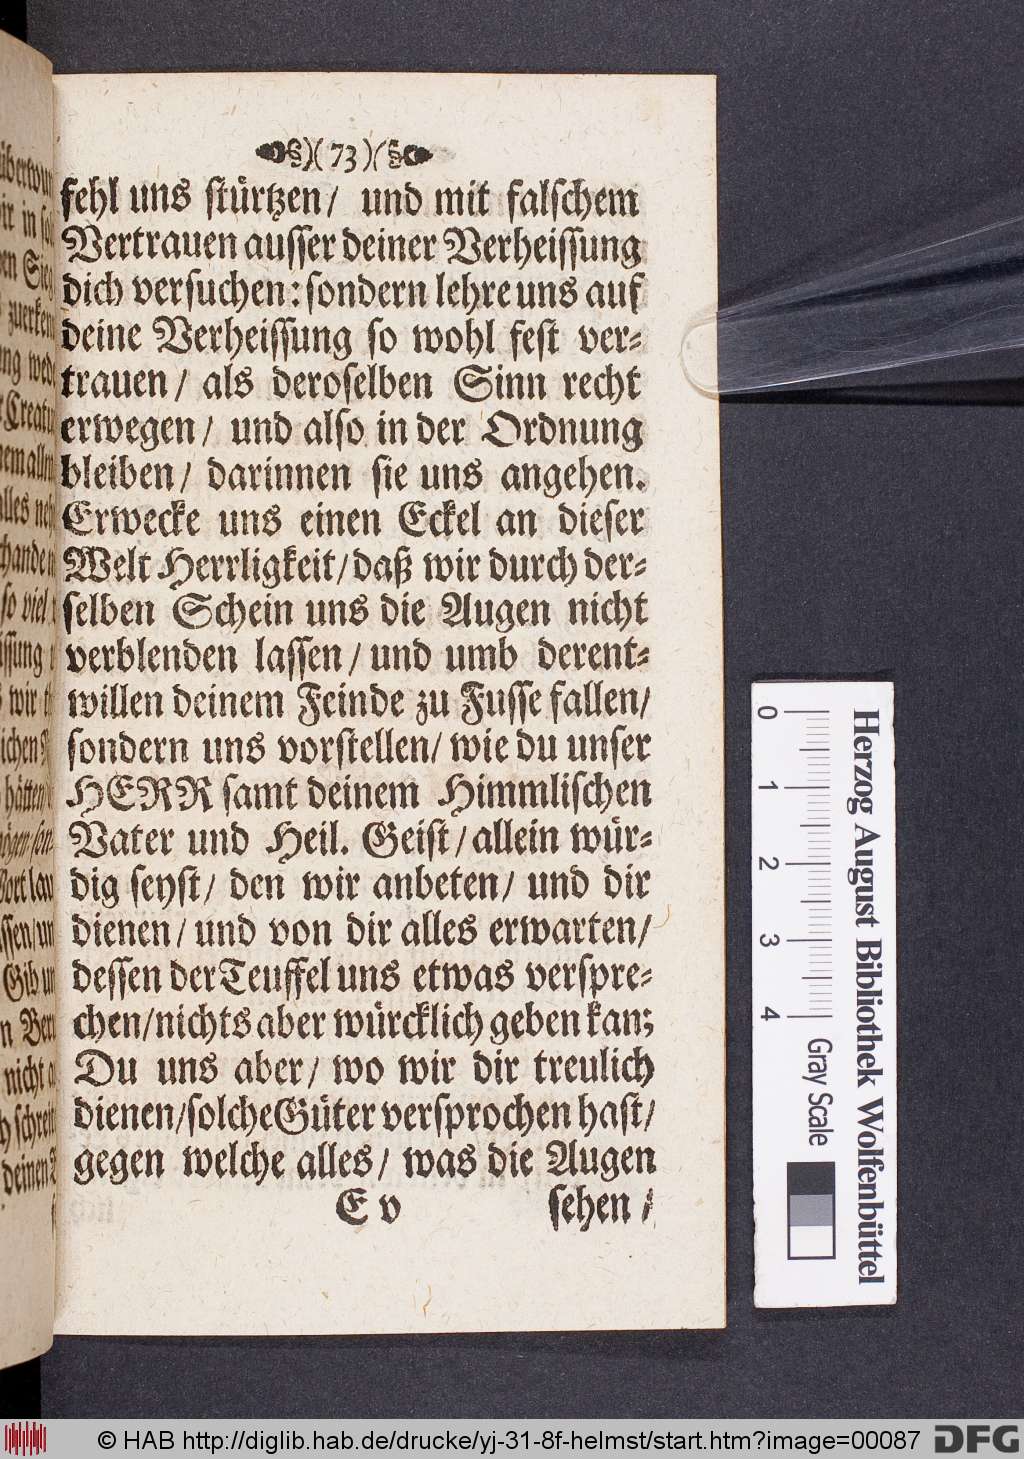 )( 73 )(
fehl uns stürtzen / und mit falschem
Vertrauen ausser deiner Verheissung
dich versuchen: sondern lehre uns auf
deine Verheissung so wohl fest ver-
trauen / als deroselben Sinn recht
erwegen / und also in der Ordnung
bleiben / darinnen sie uns angehen.
Erwecke uns einen Eckel an dieser
Welt Herrligkeit / daß wir durch der-
selben Schein uns die Augen nicht
verblenden lassen / und umb derent-
willen deinem Feinde zu Fusse fallen /
sondern uns vorstellen / wie du unser
HERR samt deinem Himmlischen
Vater und Heil. Geist / allein wür-
dig seyst / den wir anbeten / und dir
dienen / und von dir alles erwarten /
dessen der Teuffel uns etwas verspre-
chen / nichts aber würcklich geben kan;
Du uns aber / wo wir dir treulich
dienen / solche Güter versprochen hast /
gegen welche alles / was die Augen
E v sehen /
Herzog August Bibliothek Wolfenbüttel
0 1 2 3 4 Gray Scale
© HAB http://diglib.hab.de/drucke/yj-31-8f-helmst/start.htm?image=00087
DFG